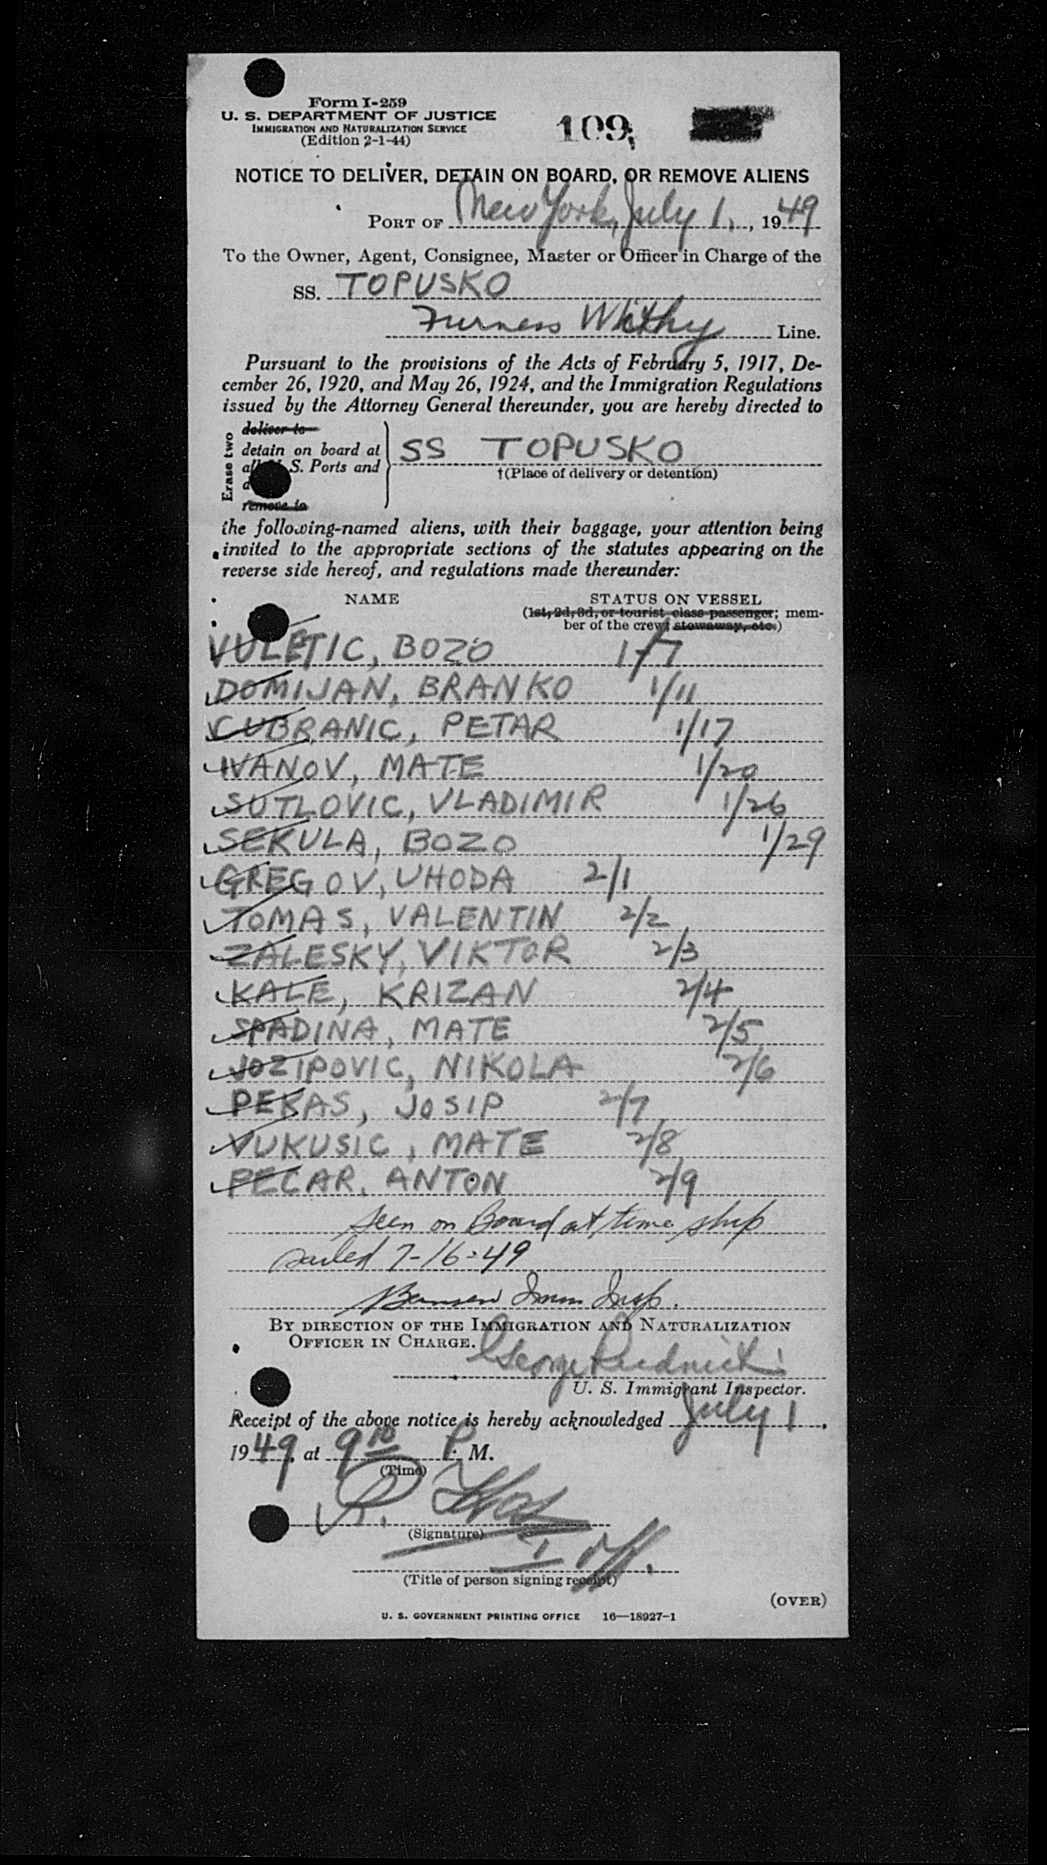 Form I-259
U. S. DEPARTMENT OF JUSTICE
IMMIGRATION AND NATURALIZATION SERVICE
(Edition 2-1-44)
109
NOTICE TO DELIVER, DETAIN ON BOARD, OR REMOVE ALIENS
PORT OF New York, July 1, 1949
To the Owner, Agent, Consignee, Master or Officer in Charge of the
SS. TOPUSKO
Furness Withy Line.
Pursuant to the provisions of the Acts of February 5, 1917, De-
cember 26, 1920, and May 26, 1924, and the Immigration Regulations
issued by the Attorney General thereunder, you are hereby directed to
Erase two
deliver to
detain on board at
all U. S. Ports and
remove to
SS TOPUSKO
†(Place of delivery or detention)
the following-named aliens, with their baggage, your attention being
invited to the appropriate sections of the statutes appearing on the
reverse side hereof, and regulations made thereunder:
NAME STATUS ON VESSEL
(1st, 2d, 3d, or tourist class passenger; mem-
ber of the crew; stowaway, etc.)
VULETIC, BOZO 1/7
DOMIJAN, BRANKO 1/11
CUBRANIC, PETAR 1/17
IVANOV, MATE 1/20
SUTLOVIC, VLADIMIR 1/26
SEKULA, BOZO 1/29
GREGOV, UHODA 2/1
TOMAS, VALENTIN 2/2
ZALESKY, VIKTOR 2/3
KALE, KRIZAN 2/4
SPADINA, MATE 2/5
JOZIPOVIC, NIKOLA 2/6
PEKAS, JOSIP 2/7
VUKUSIC, MATE 2/8
PECAR, ANTON 2/9
Seen on Board at time ship
sailed 7-16-49
Imm Insp.
BY DIRECTION OF THE IMMIGRATION AND NATURALIZATION
OFFICER IN CHARGE.
George Rudnicki
U. S. Immigrant Inspector.
Receipt of the above notice is hereby acknowledged July 1,
1949, at 9 10 P. M.
(Time)
R.
(Signature)
(Title of person signing receipt)
(OVER)
U. S. GOVERNMENT PRINTING OFFICE 16—18927-1